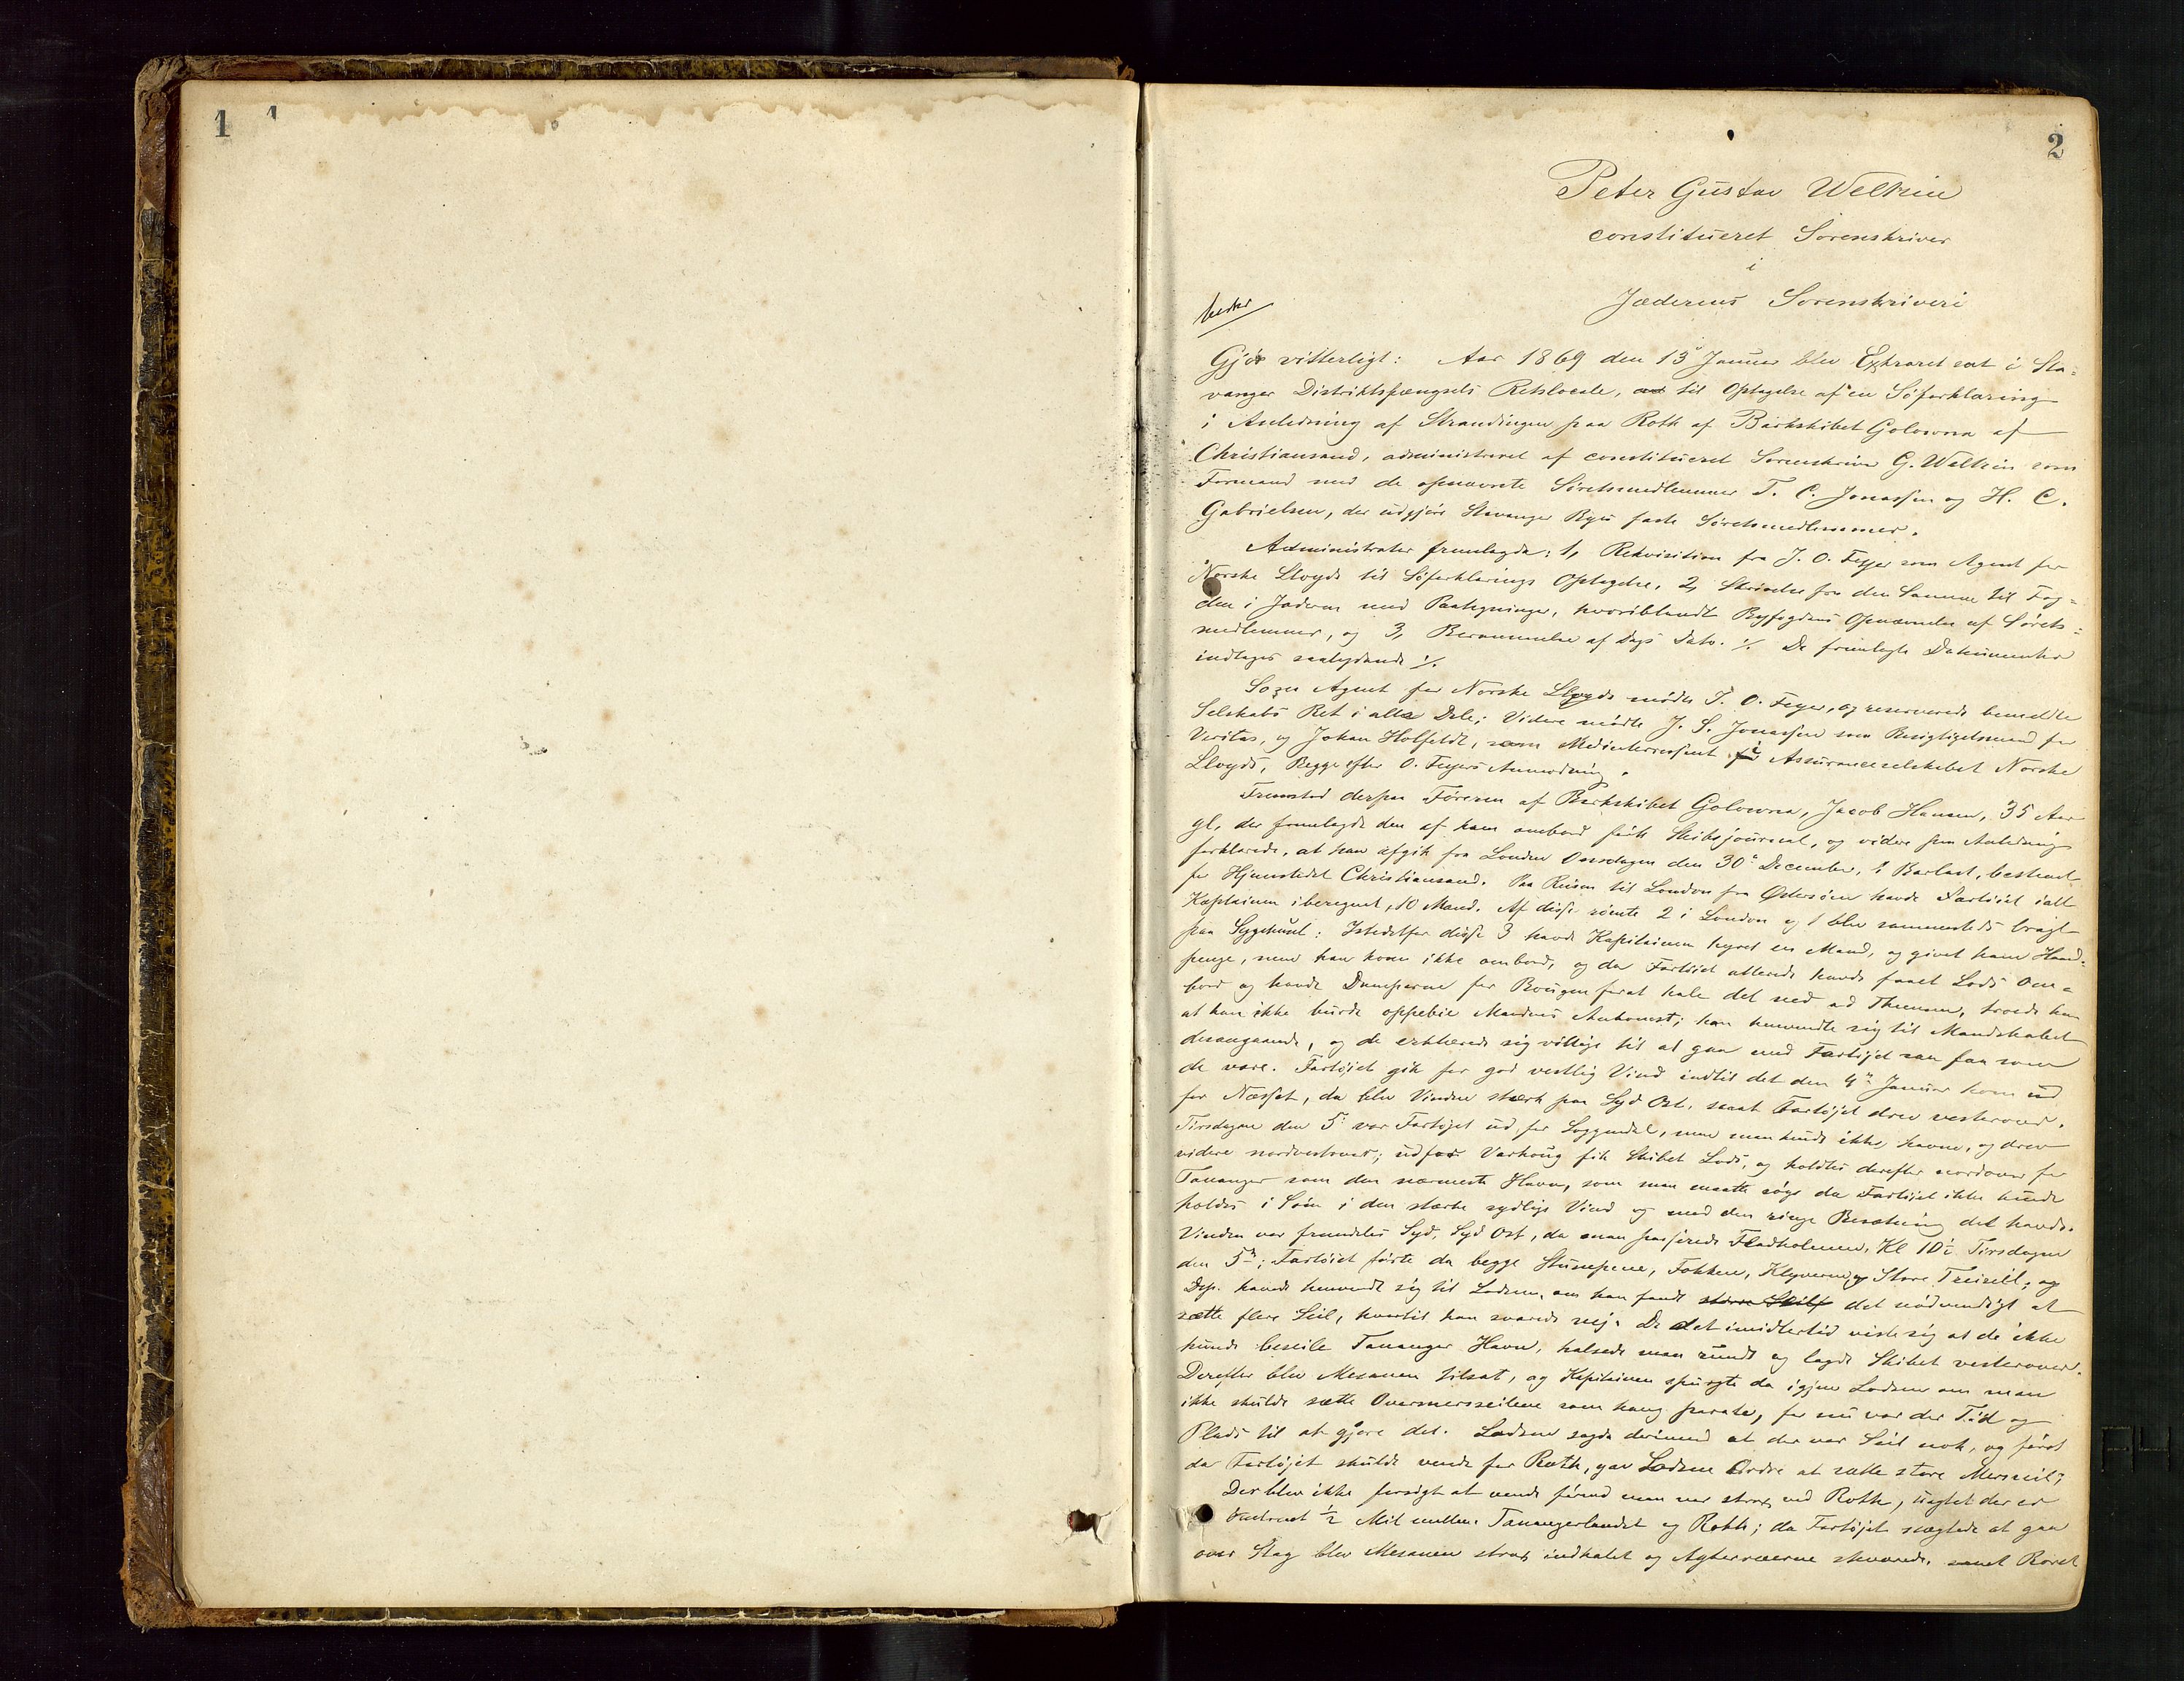 1 1
2
Peter Gustav Welhen
constitueret Sorenskriver
i
Jæderens Sorenskriveri
Gjör vitterligt: Aar 1869 den 13' Januar blev Extraret sat i Sta-
vanger Distriktsfængsels Retslocale, til Optagelse af en Söforklaring
i Anledning af Strandingen paa Roth af Barkskibet Golowna af
Christiansand, administreret af constitueret Sorenskriver G. Welhen som
Formand med de opnævnte Söretsmedlemmer T. C. Jonassen og H. C.
Gabrielsen, der udgjöre Stavanger Byes faste Söretsmedlemmer.
Administrator fremlagde: 1, Rekvisition fra J. O. Feyer som Agent for
Norske Lloyds til Söforklarings Optagelse. 2, Skrivelse fra den Samme til Fog-
den i Jæderen med Paategninger, hvoriblandt Byfogdens Opnævnelse af Sörets-
medlemmer, og 3, Berammelse af Dags Dato. ./. De fremlagte Dokumenter
indtages saalydende ./.
Som Agent for Norske Lloyds mödte J. O. Feyer, og reserverede bemeldte
Selskabs Ret i alle Dele; Videre mödte J. S. Jonassen som Besigtigelsmand for
Veritas, og Johan Holfeldt, som Medinteressent i Assuranceselskabet Norske
Lloyds, Begge efter O. Feyers Anmodning.
Fremstod derpaa Föreren af Barkskibet Golowna, Jacob Hansen, 35 Aar
gl, der fremlagde den af ham ombord förte Skibsjournal, og videre paa Anledning
forklarede, at han afgik fra London Onsdagen den 30' December, i Barlast, bestemt
for Hjemstedet Christiansand. Paa Reisen til London fra Östersöen havde Fartöiet ialt
Kaptainen iberegnet, 10 Mand. Af disse römte 2 i London og 1 blev sammesteds bragt
paa Sygehuset: Istedetfor disse 3 havde Kapitainen hyret en Mand, og givet ham Haand-
penge, men han kom ikke ombord, og da Fartöiet allerede havde faaet Lods om-
bord og havde Damperne for Bougen forat hale det ned ad Themsen, troede han
at han ikke burde oppebie Mandens Ankomst; han henvendte sig til Mandskabet
desangaaende, og de erklærede sig villige til at gaa med Fartöjet saa faa som
de vare. Fartöjet gik for god vestlig Vind indtil det den 4' Januar kom ud
for Næsset, da blev Vinden stærk paa Syd Ost, saaat Fartöjet drev vesterover.
Tirsdagen den 5' var Fartöjet ud for Soggendal, men man kunde ikke havne, og drev
videre nordvestover; udfor Varhoug fik Skibet Lods, og holdtes derefter nordover for
Tananger som den nærmeste Havn, som man maatte söge da Fartöiet ikke kunde
holdes i Söen i den stærke sydlige Vind og med den ringe Besætning det havde.
Vinden var fremdeles Syd, Syd Ost, da man passerede Fladholmen, Kl 10½ Tirsdagen
den 5'; Fartöiet förte da begge Stumpene, Fokken, Klyveren og Store Treiseil, og
Dep. havde henvendt sig til Lodsen, om han fandt det nödvendigt at
sætte flere Seil, hvortil han svarede nej. Da det imidlertid viste sig at de ikke
kunde beseile Tananger Havn, halsede man rundt og lagde Skibet vesterover.
Derefter blev Mesanen tilsat, og Kapitainen spurgte da igjen Lodsen om man
ikke skulde sætte Overmersseilene som hang parate, for nu var der Tid og
Plads til at gjöre det. Lodsen sagde derimod at der var Seil nok, og först
da Fartöjet skulde vende for Roth, gav Lodsen Ordre at sætte store Merseil;
Der blev ikke forsögt at vende förend man var strax ved Roth, uagtet der er
omtrent ½ Mil mellem Tanangerlandet og Roth; da Fartöjet nægtede at gaa
over Stag blev Mesanen strax indhalet og Agterræerne skvarede, samt Roret